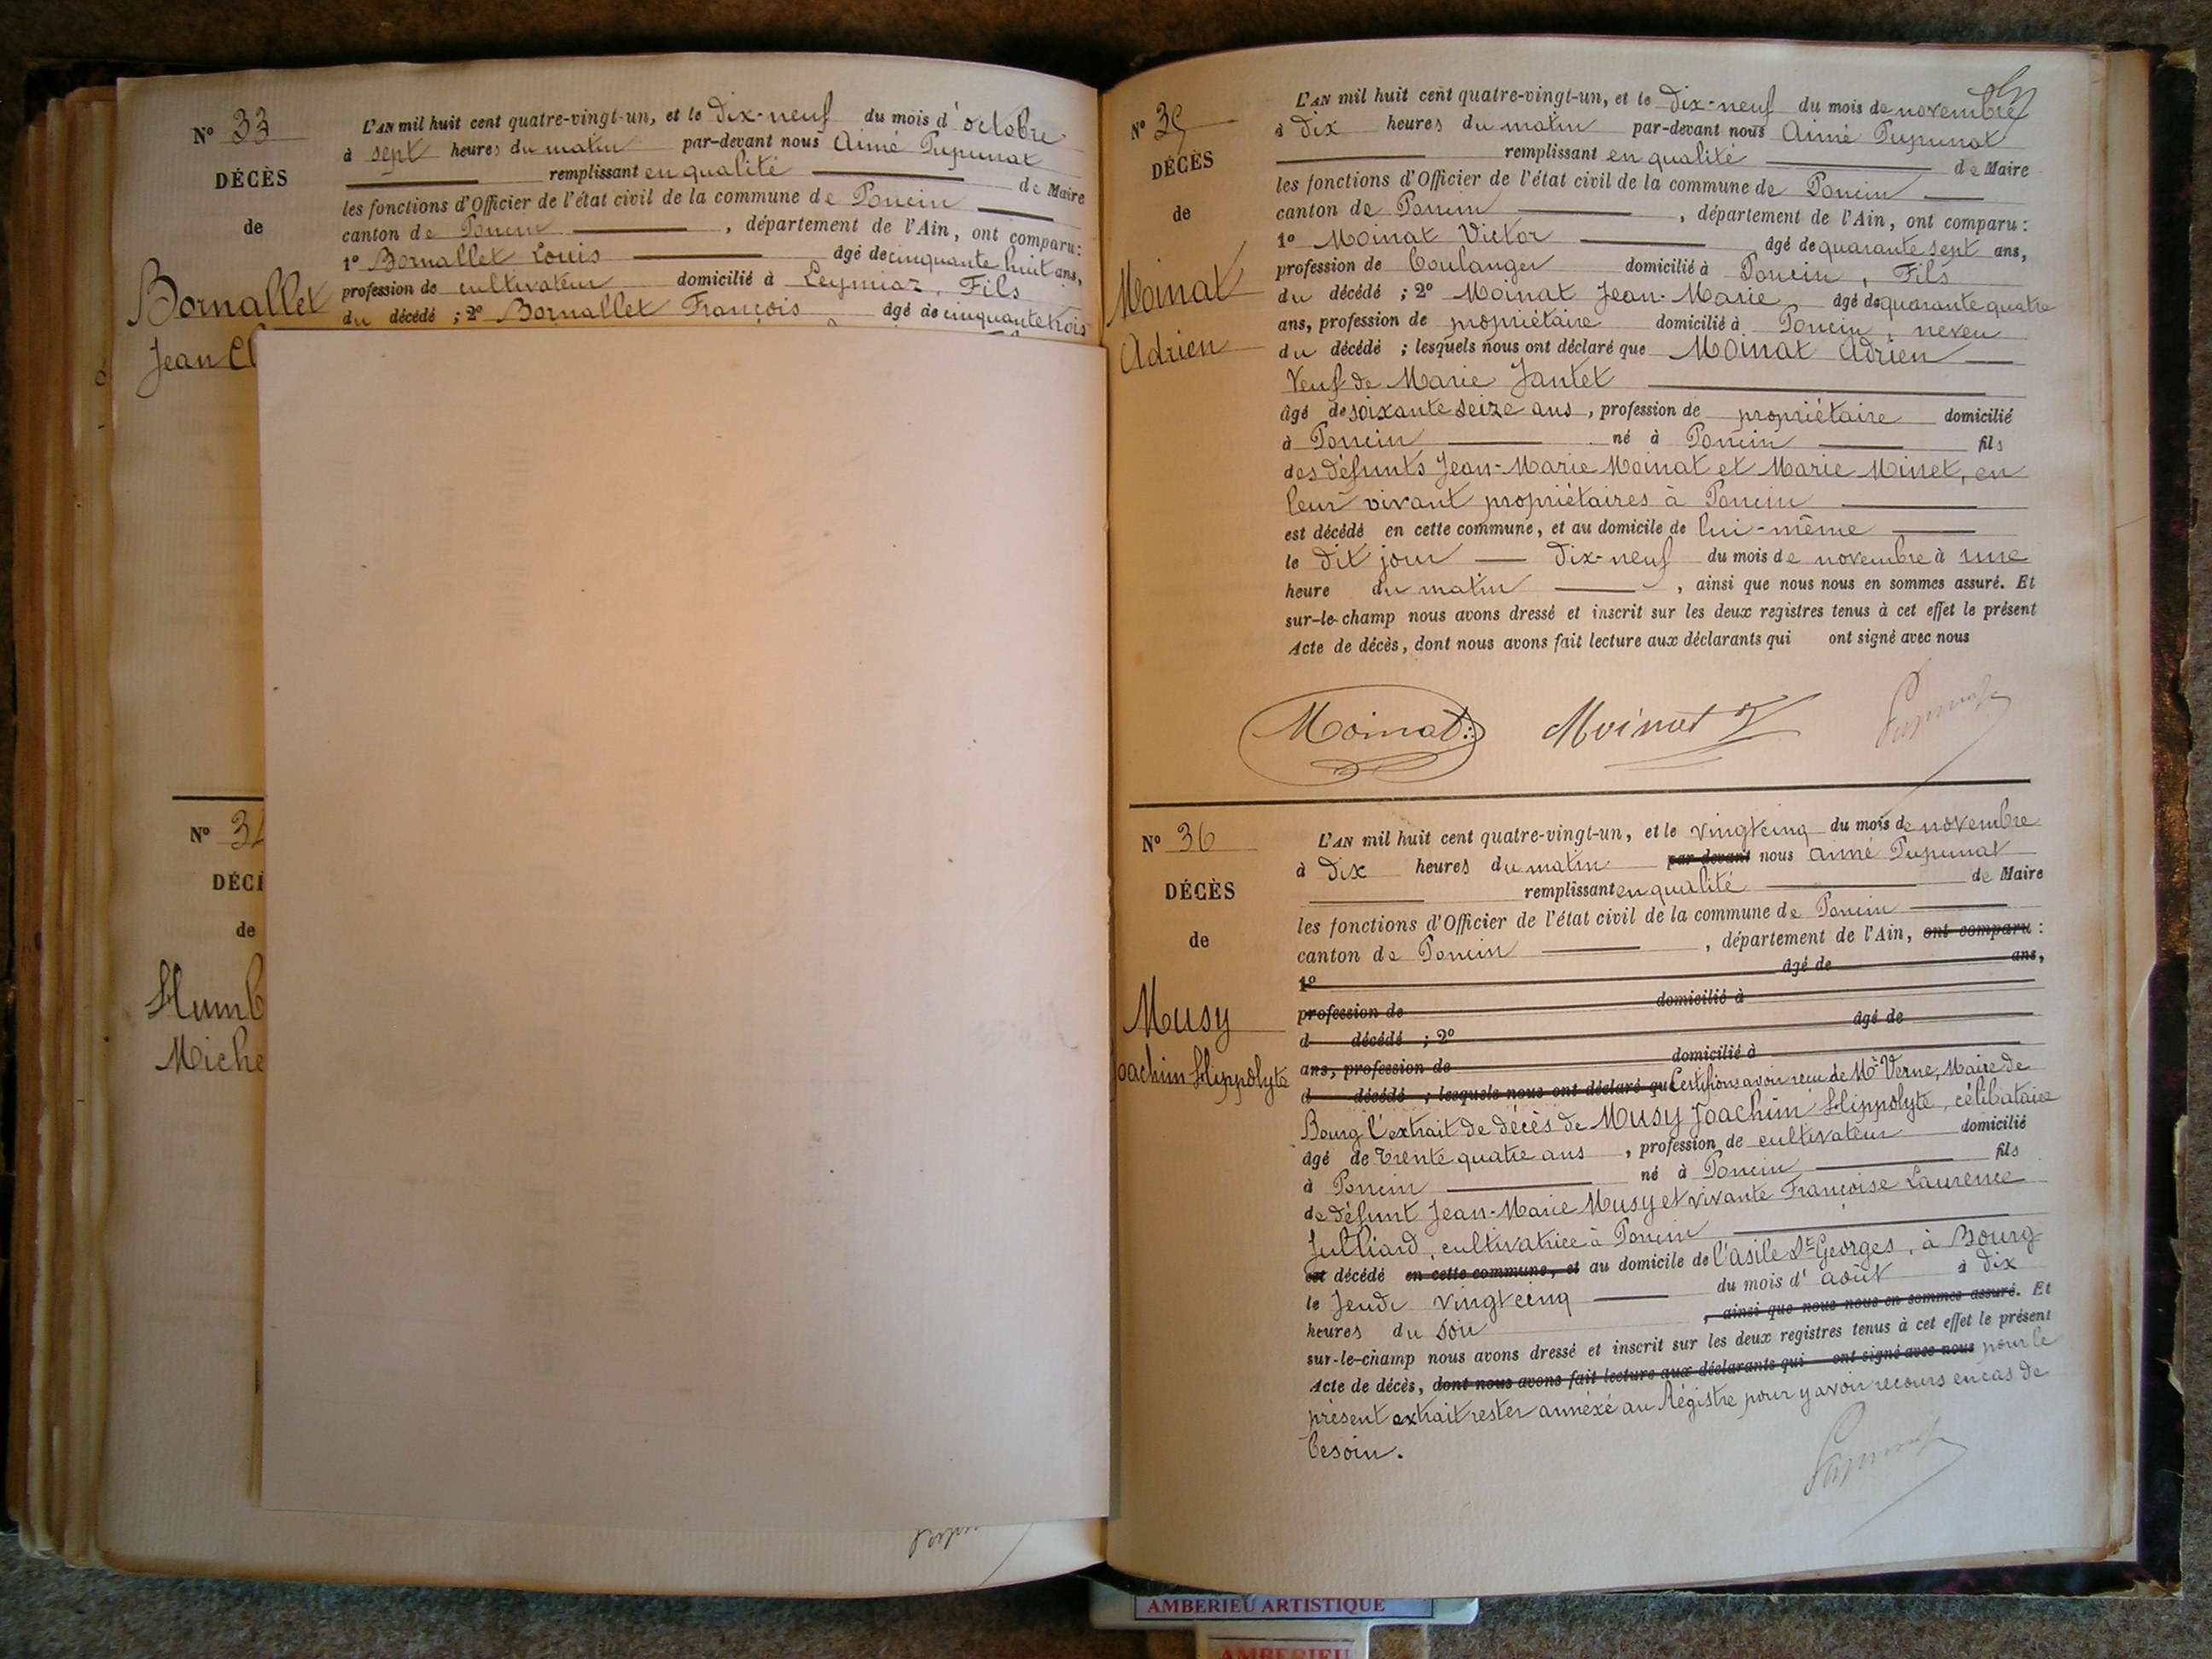 N° 33
DÉCÈS
de
Bornallet
Jean Cl
L'AN mil huit cent quatre-vingt-un, et le dix-neuf du mois d'octobre
à sept heures du matin par-devant nous Aimé Pupunat
remplissant en qualité de Maire
les fonctions d'Officier de l'état civil de la commune de Poncin
canton de Poncin, département de l'Ain, ont comparu:
1° Bornallet Louis âgé de cinquante huit ans,
profession de cultivateur domicilié à Leymiaz, Fils
du décédé; 2° Bornallet François âgé de cinquante trois
N° 34
DÉCÈ
de
Humb
Miche
N° 35
DÉCÈS
de
Moinat
Adrien
L'AN mil huit cent quatre-vingt-un, et le dix-neuf du mois de novembre
à dix heures du matin par-devant nous Aimé Pupunat
remplissant en qualité de Maire
les fonctions d'Officier de l'état civil de la commune de Poncin
canton de Poncin, département de l'Ain, ont comparu:
1° Moinat Victor âgé de quarante sept ans,
profession de boulanger domicilié à Poncin, Fils
du décédé; 2° Moinat Jean-Marie âgé de quarante quatre
ans, profession de propriétaire domicilié à Poncin, neveu
du décédé; lesquels nous ont déclaré que Moinat Adrien
Veuf de Marie Jantet
âgé de soixante seize ans, profession de propriétaire domicilié
à Poncin né à Poncin fils
des défunts Jean-Marie Moinat et Marie Minet, en
leur vivant propriétaires à Poncin
est décédé en cette commune, et au domicile de lui-même
le dit jour dix-neuf du mois de novembre à une
heure du matin, ainsi que nous nous en sommes assuré. Et
sur-le-champ nous avons dressé et inscrit sur les deux registres tenus à cet effet le présent
Acte de décès, dont nous avons fait lecture aux déclarants qui ont signé avec nous
Moinat Moinat V
N° 36
DÉCÈS
de
Musy
Joachim Hippolyte
L'AN mil huit cent quatre-vingt-un, et le vingt cinq du mois de novembre
à dix heures du matin par-devant nous Aimé Pupunat
remplissant en qualité de Maire
les fonctions d'Officier de l'état civil de la commune de Poncin
canton de Poncin, département de l'Ain, ont comparu:
1° âgé de ans,
profession de domicilié à
d décédé; 2° âgé de
ans, profession de domicilié à
d décédé; lesquels nous ont déclaré que Certifions avoir reçu de Mr Verne, Maire de
Bourg l'extrait de décès de Musy Joachim Hippolyte, célibataire
âgé de trente quatre ans, profession de cultivateur domicilié
à Poncin né à Poncin fils
de défunt Jean-Marie Musy et vivante Françoise Laurence
Julliard, cultivatrice à Poncin
est décédé en cette commune, et au domicile de l'asile St Georges, à Bourg
le Jeudi vingt cinq du mois d'août à dix
heures du soir, ainsi que nous nous en sommes assuré. Et
sur-le-champ nous avons dressé et inscrit sur les deux registres tenus à cet effet le présent
Acte de décès, dont nous avons fait lecture aux déclarants qui ont signé avec nous pour le
présent extrait rester annéxé au Régistre pour y avoir recours en cas de
besoin.
AMBERIEU ARTISTIQUE
AMBERIEU